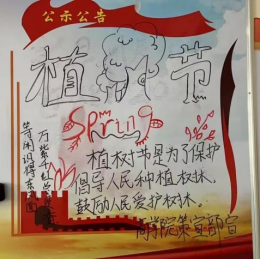 公示公告
植树节
Spring
万紫千红总是春
等闲识得东风面
植树节是为了保护
倡导人民种植树林、
鼓励人民爱护树林。
商学院策宣部宣